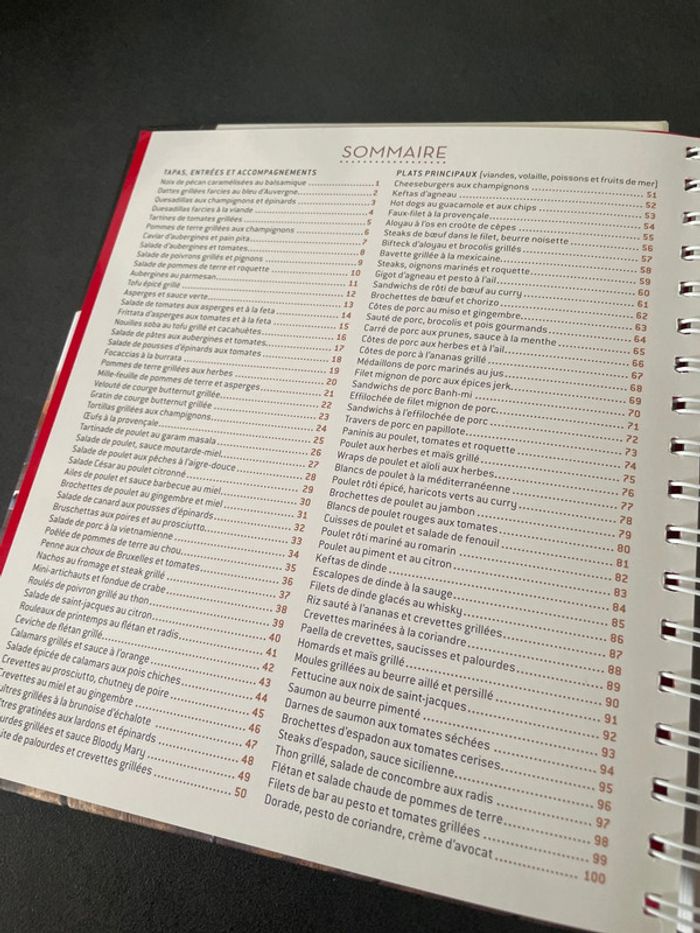 SOMMAIRE
TAPAS, ENTRÉES ET ACCOMPAGNEMENTS
Noix de pécan caramélisées au balsamique 1
Dattes grillées farcies au bleu d'Auvergne 2
Quesadillas aux champignons et épinards 3
Quesadillas farcies à la viande 4
Tartines de tomates grillées 5
Pommes de terre grillées aux champignons 6
Caviar d'aubergines et pain pita 7
Salade d'aubergines et tomates 8
Salade de poivrons grillés et pignons 9
Salade de pommes de terre et roquette 10
Aubergines au parmesan 11
Tofu épicé grillé 12
Asperges et sauce verte 13
Salade de tomates aux asperges et à la feta 14
Frittata d'asperges aux tomates et à la feta 15
Nouilles soba au tofu grillé et cacahuètes 16
Salade de pâtes aux aubergines et tomates 17
Salade de pousses d'épinards aux tomates 18
Focaccias à la burrata 19
Pommes de terre grillées aux herbes 20
Mille-feuille de pommes de terre et asperges 21
Velouté de courge butternut grillée 22
Gratin de courge butternut grillée 23
Tortillas grillées aux champignons 24
Œufs à la provençale 25
Tartinade de poulet au garam masala 26
Salade de poulet, sauce moutarde-miel 27
Salade de poulet aux pêches à l'aigre-douce 28
Salade César au poulet citronné 29
Ailes de poulet et sauce barbecue au miel 30
Brochettes de poulet au gingembre et miel 31
Salade de canard aux pousses d'épinards 32
Bruschettas aux poires et au prosciutto 33
Salade de porc à la vietnamienne 34
Poêlée de pommes de terre au chou 35
Penne aux choux de Bruxelles et tomates 36
Nachos au fromage et steak grillé 37
Mini-artichauts et fondue de crabe 38
Roulés de poivron grillé au thon 39
Salade de saint-jacques au citron 40
Rouleaux de printemps au flétan et radis 41
Ceviche de flétan grillé 42
Calamars grillés et sauce à l'orange 43
Salade épicée de calamars aux pois chiches 44
Crevettes au prosciutto, chutney de poire 45
Crevettes au miel et au gingembre 46
îtres grillées à la brunoise d'échalote 47
tres gratinées aux lardons et épinards 48
urdes grillées et sauce Bloody Mary 49
ite de palourdes et crevettes grillées 50
PLATS PRINCIPAUX (viandes, volaille, poissons et fruits de mer)
Cheeseburgers aux champignons 51
Keftas d'agneau 52
Hot dogs au guacamole et aux chips 53
Faux-filet à la provençale 54
Aloyau à l'os en croûte de cèpes 55
Steaks de bœuf dans le filet, beurre noisette 56
Bifteck d'aloyau et brocolis grillés 57
Bavette grillée à la mexicaine 58
Steaks, oignons marinés et roquette 59
Gigot d'agneau et pesto à l'ail 60
Sandwichs de rôti de bœuf au curry 61
Brochettes de bœuf et chorizo 62
Côtes de porc au miso et gingembre 63
Sauté de porc, brocolis et pois gourmands 64
Carré de porc aux prunes, sauce à la menthe 65
Côtes de porc aux herbes et à l'ail 66
Côtes de porc à l'ananas grillé 67
Médaillons de porc marinés au jus 68
Filet mignon de porc aux épices jerk 69
Sandwichs de porc Banh-mi 70
Effilochée de filet mignon de porc 71
Sandwichs à l'effilochée de porc 72
Travers de porc en papillote 73
Paninis au poulet, tomates et roquette 74
Poulet aux herbes et maïs grillé 75
Wraps de poulet et aïoli aux herbes 76
Blancs de poulet à la méditerranéenne 77
Poulet rôti épicé, haricots verts au curry 78
Brochettes de poulet au jambon 79
Blancs de poulet rouges aux tomates 80
Cuisses de poulet et salade de fenouil 81
Poulet rôti mariné au romarin 82
Poulet au piment et au citron 83
Keftas de dinde 84
Escalopes de dinde à la sauge 85
Filets de dinde glacés au whisky 86
Riz sauté à l'ananas et crevettes grillées 87
Crevettes marinées à la coriandre 88
Paella de crevettes, saucisses et palourdes 89
Homards et maïs grillé 90
Moules grillées au beurre aillé et persillé 91
Fettucine aux noix de saint-jacques 92
Saumon au beurre pimenté 93
Darnes de saumon aux tomates séchées 94
Brochettes d'espadon aux tomates cerises 95
Steaks d'espadon, sauce sicilienne 96
Thon grillé, salade de concombre aux radis 97
Flétan et salade chaude de pommes de terre 98
Filets de bar au pesto et tomates grillées 99
Dorade, pesto de coriandre, crème d'avocat 100